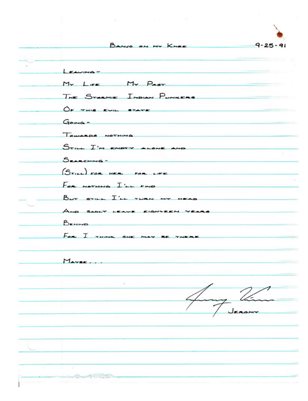 Banjo on my Knee 9-25-91
Leaving-
My Life My Past
The Storms Indian Punkers
Of this evil state
Going-
Towards nothing
Still I'm empty alone and
Searching-
(Still) for her for life
For nothing I'll find
But still I'll turn my head
And sadly leave eighteen years
Behind
For I think she may be there
Maybe...
Jeromy